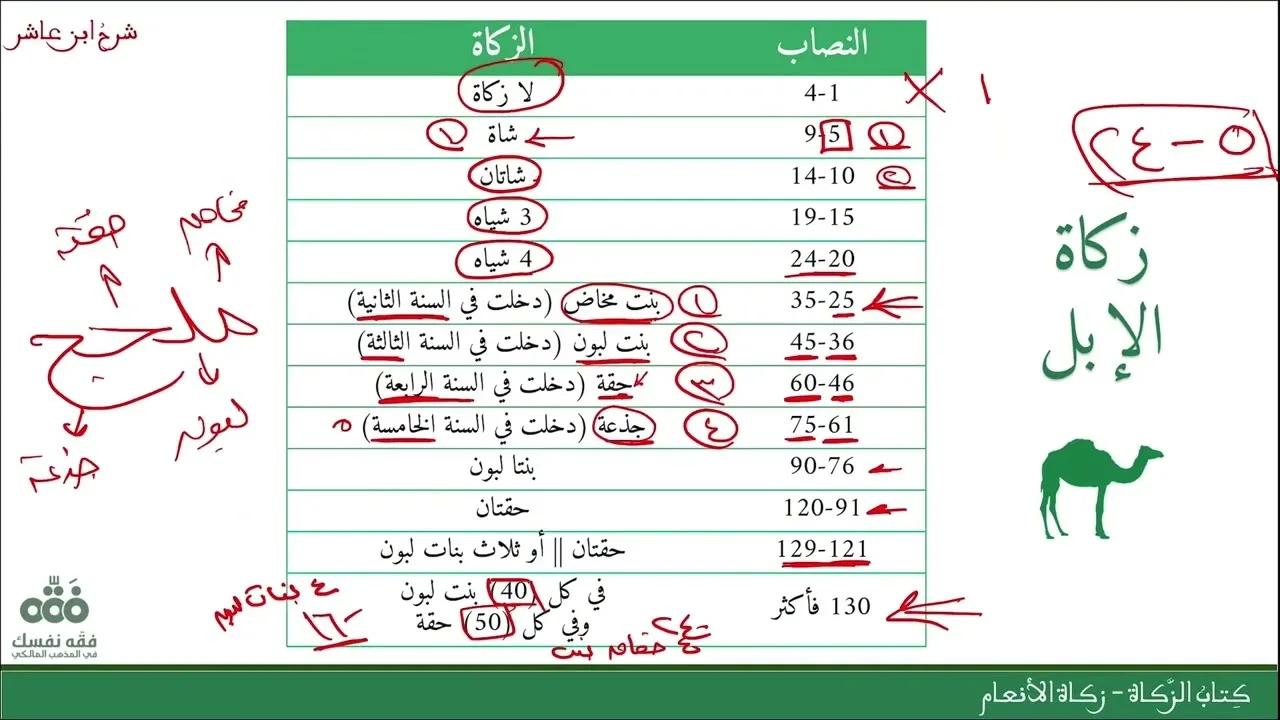 شرحُ ابن عاشر
النصاب الزكاة
4-1 لا زكاة
9-5 شاة
14-10 شاتان
19-15 3 شياه
24-20 4 شياه
35-25 بنت مخاض (دخلت في السنة الثانية)
45-36 بنت لبون (دخلت في السنة الثالثة)
60-46 حِقة (دخلت في السنة الرابعة)
75-61 جذعة (دخلت في السنة الخامسة)
90-76 بنتا لبون
120-91 حقتان
129-121 حقتان || أو ثلاث بنات لبون
130 فأكثر في كل (40) بنت لبون
وفي كل (50) حقة
١
٥ - ٢٤
١ ١
٢
١
٢
٣
٤
٥
زكاة
الإبل
مخاض
حقة
ملحج
لبون
جذعة
٤ بنات لبون
١٦٠
فقه
فقه نفسك
في المذهب المالكي
كِتابُ الزَّكاة - زكاة الأنعام